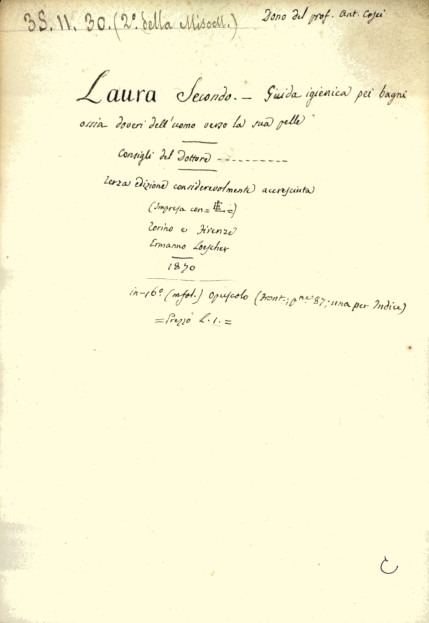 38. 11. 30. (2º. della Miscell.)
Dono del prof. Ant. Cosci
Laura Secondo. — Guida igienica pei bagni
ossia doveri dell'uomo verso la sua pelle
Consigli del Dottore ------------
Terza edizione considerevolmente accresciuta
(Impresa con= =)
Torino e Firenze
Ermanno Loescher
1870
in-16º (mfol.) Opuscolo (Front.; pne 87; una per Indice)
=Prezzo L. 1.=